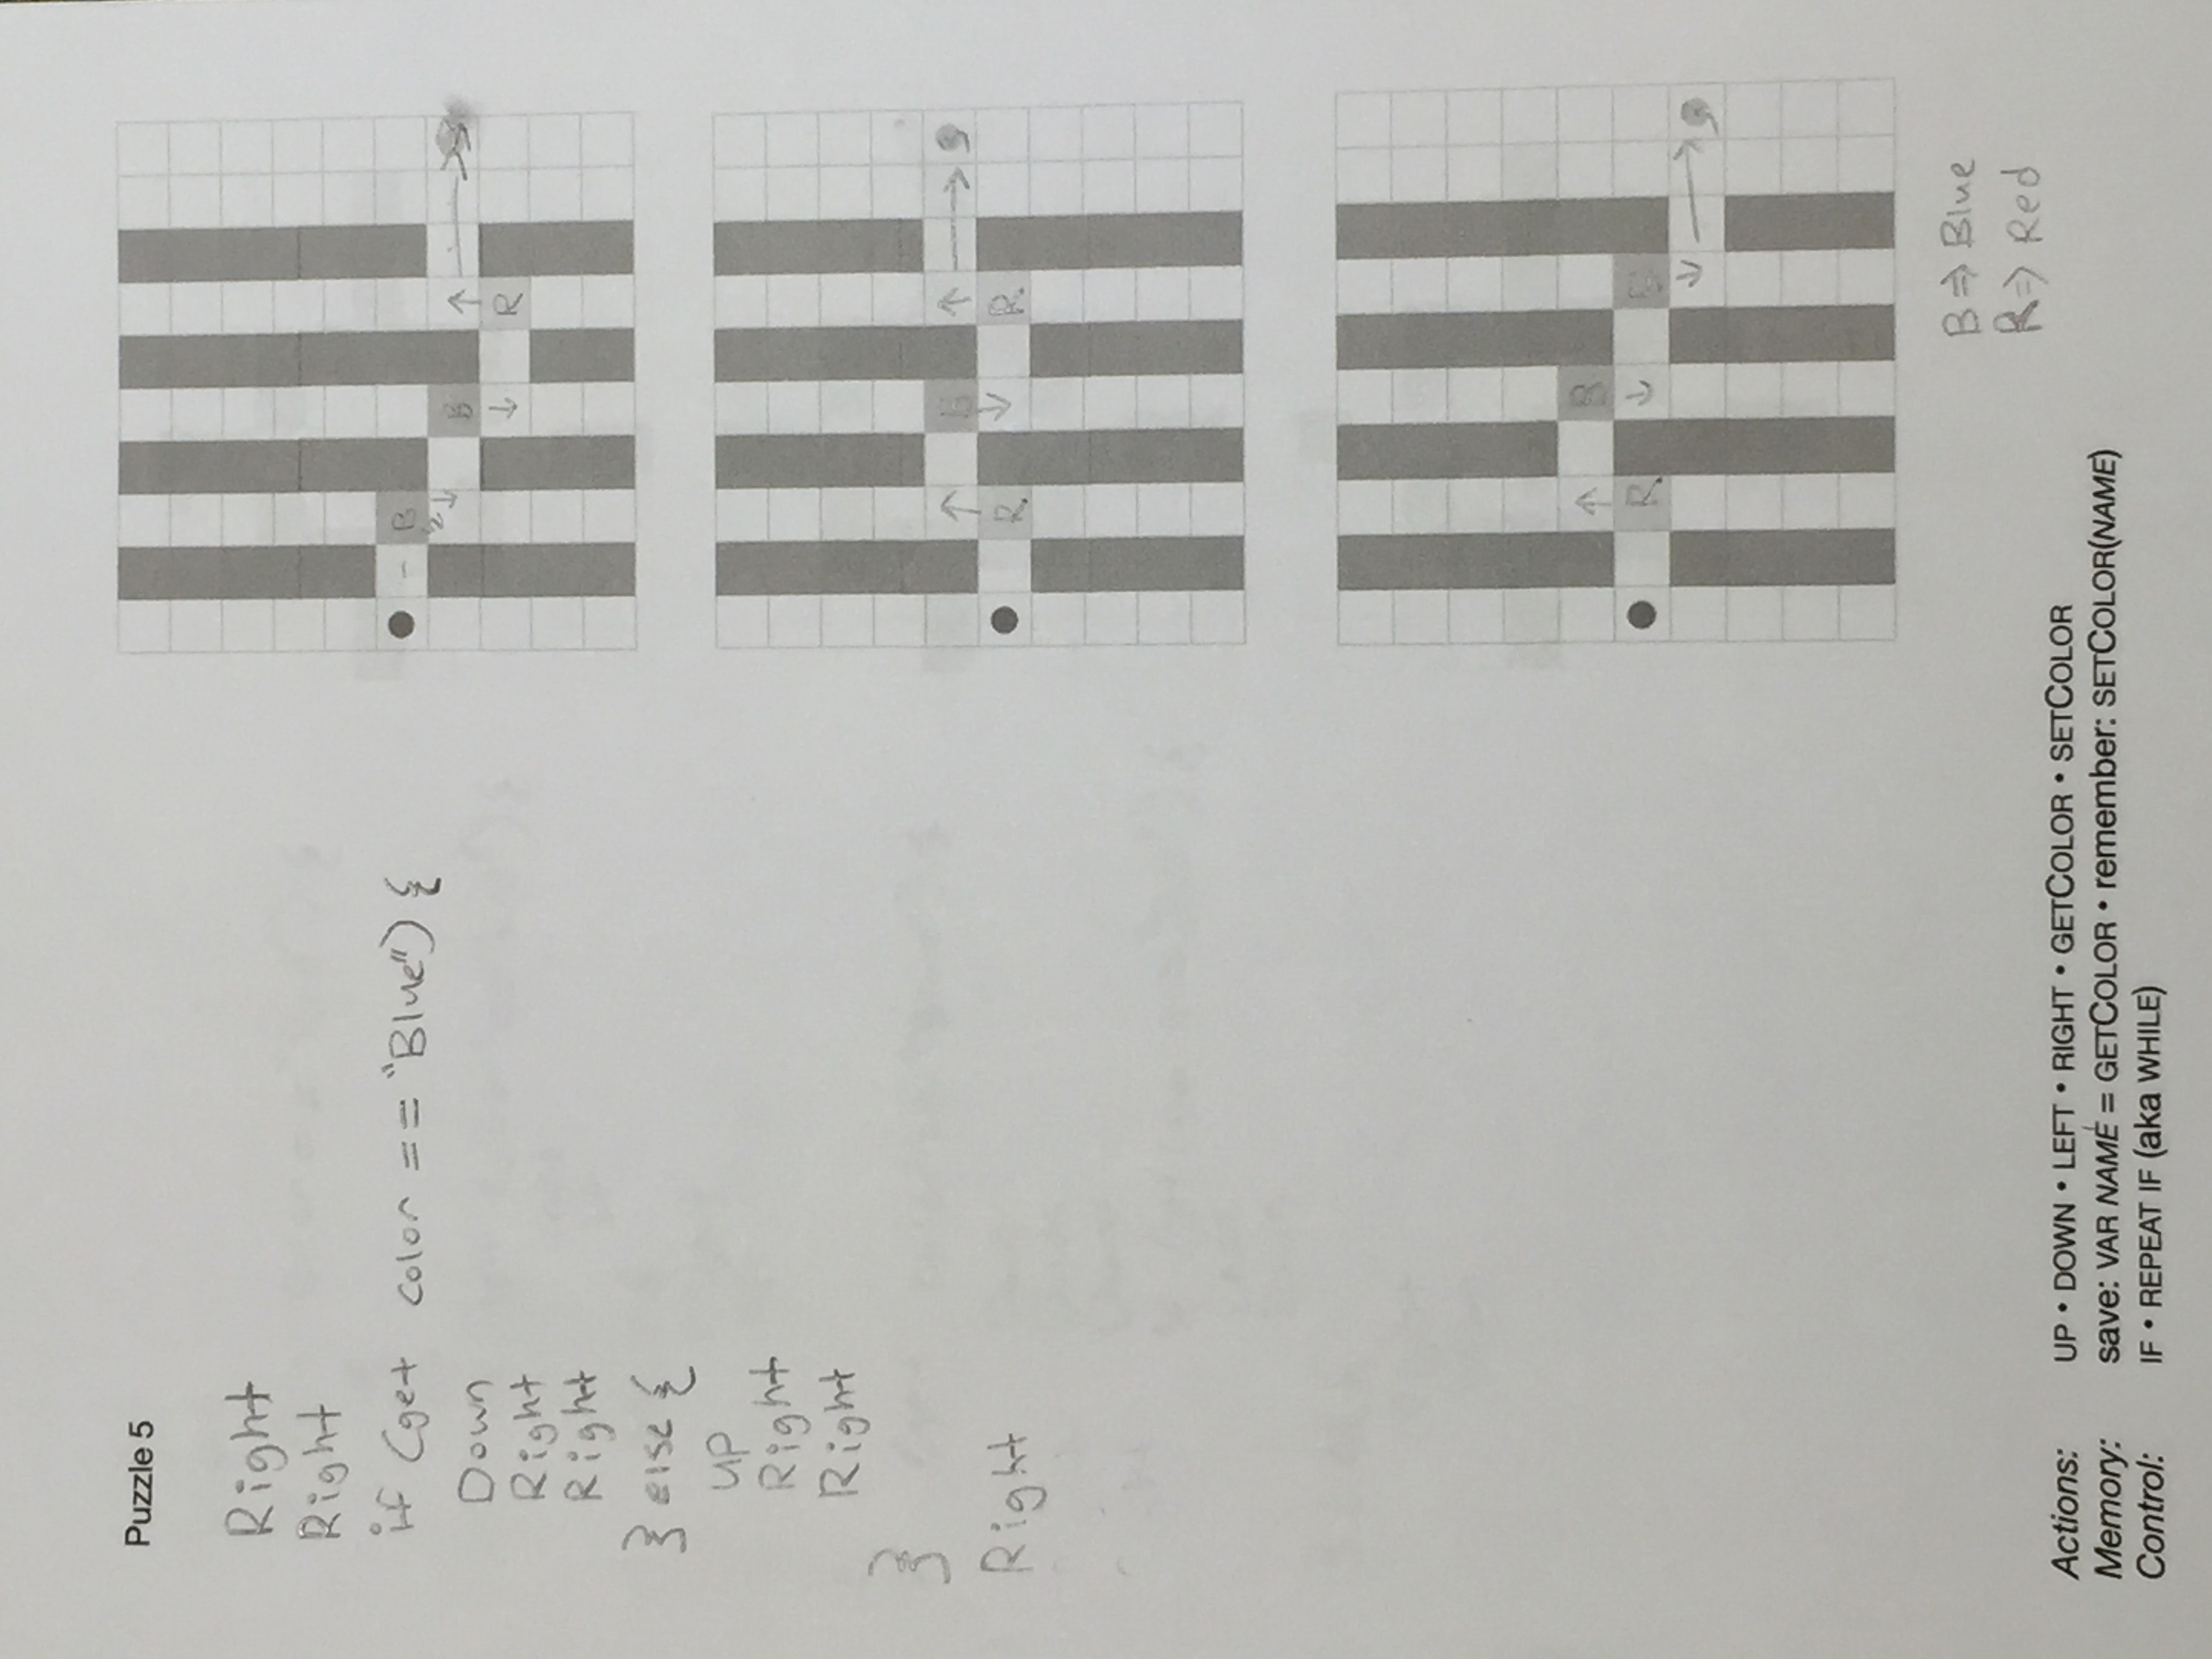 Puzzle 5
Right
Right
if (get color == "Blue") {
Down
Right
Right
} else {
UP
Right
Right
}
Right
B
B
R
R
R
R
B
B => Blue
R => Red
Actions: UP • DOWN • LEFT • RIGHT • GETCOLOR • SETCOLOR
Memory: save: VAR NAME = GETCOLOR • remember: SETCOLOR(NAME)
Control: IF • REPEAT IF (aka WHILE)